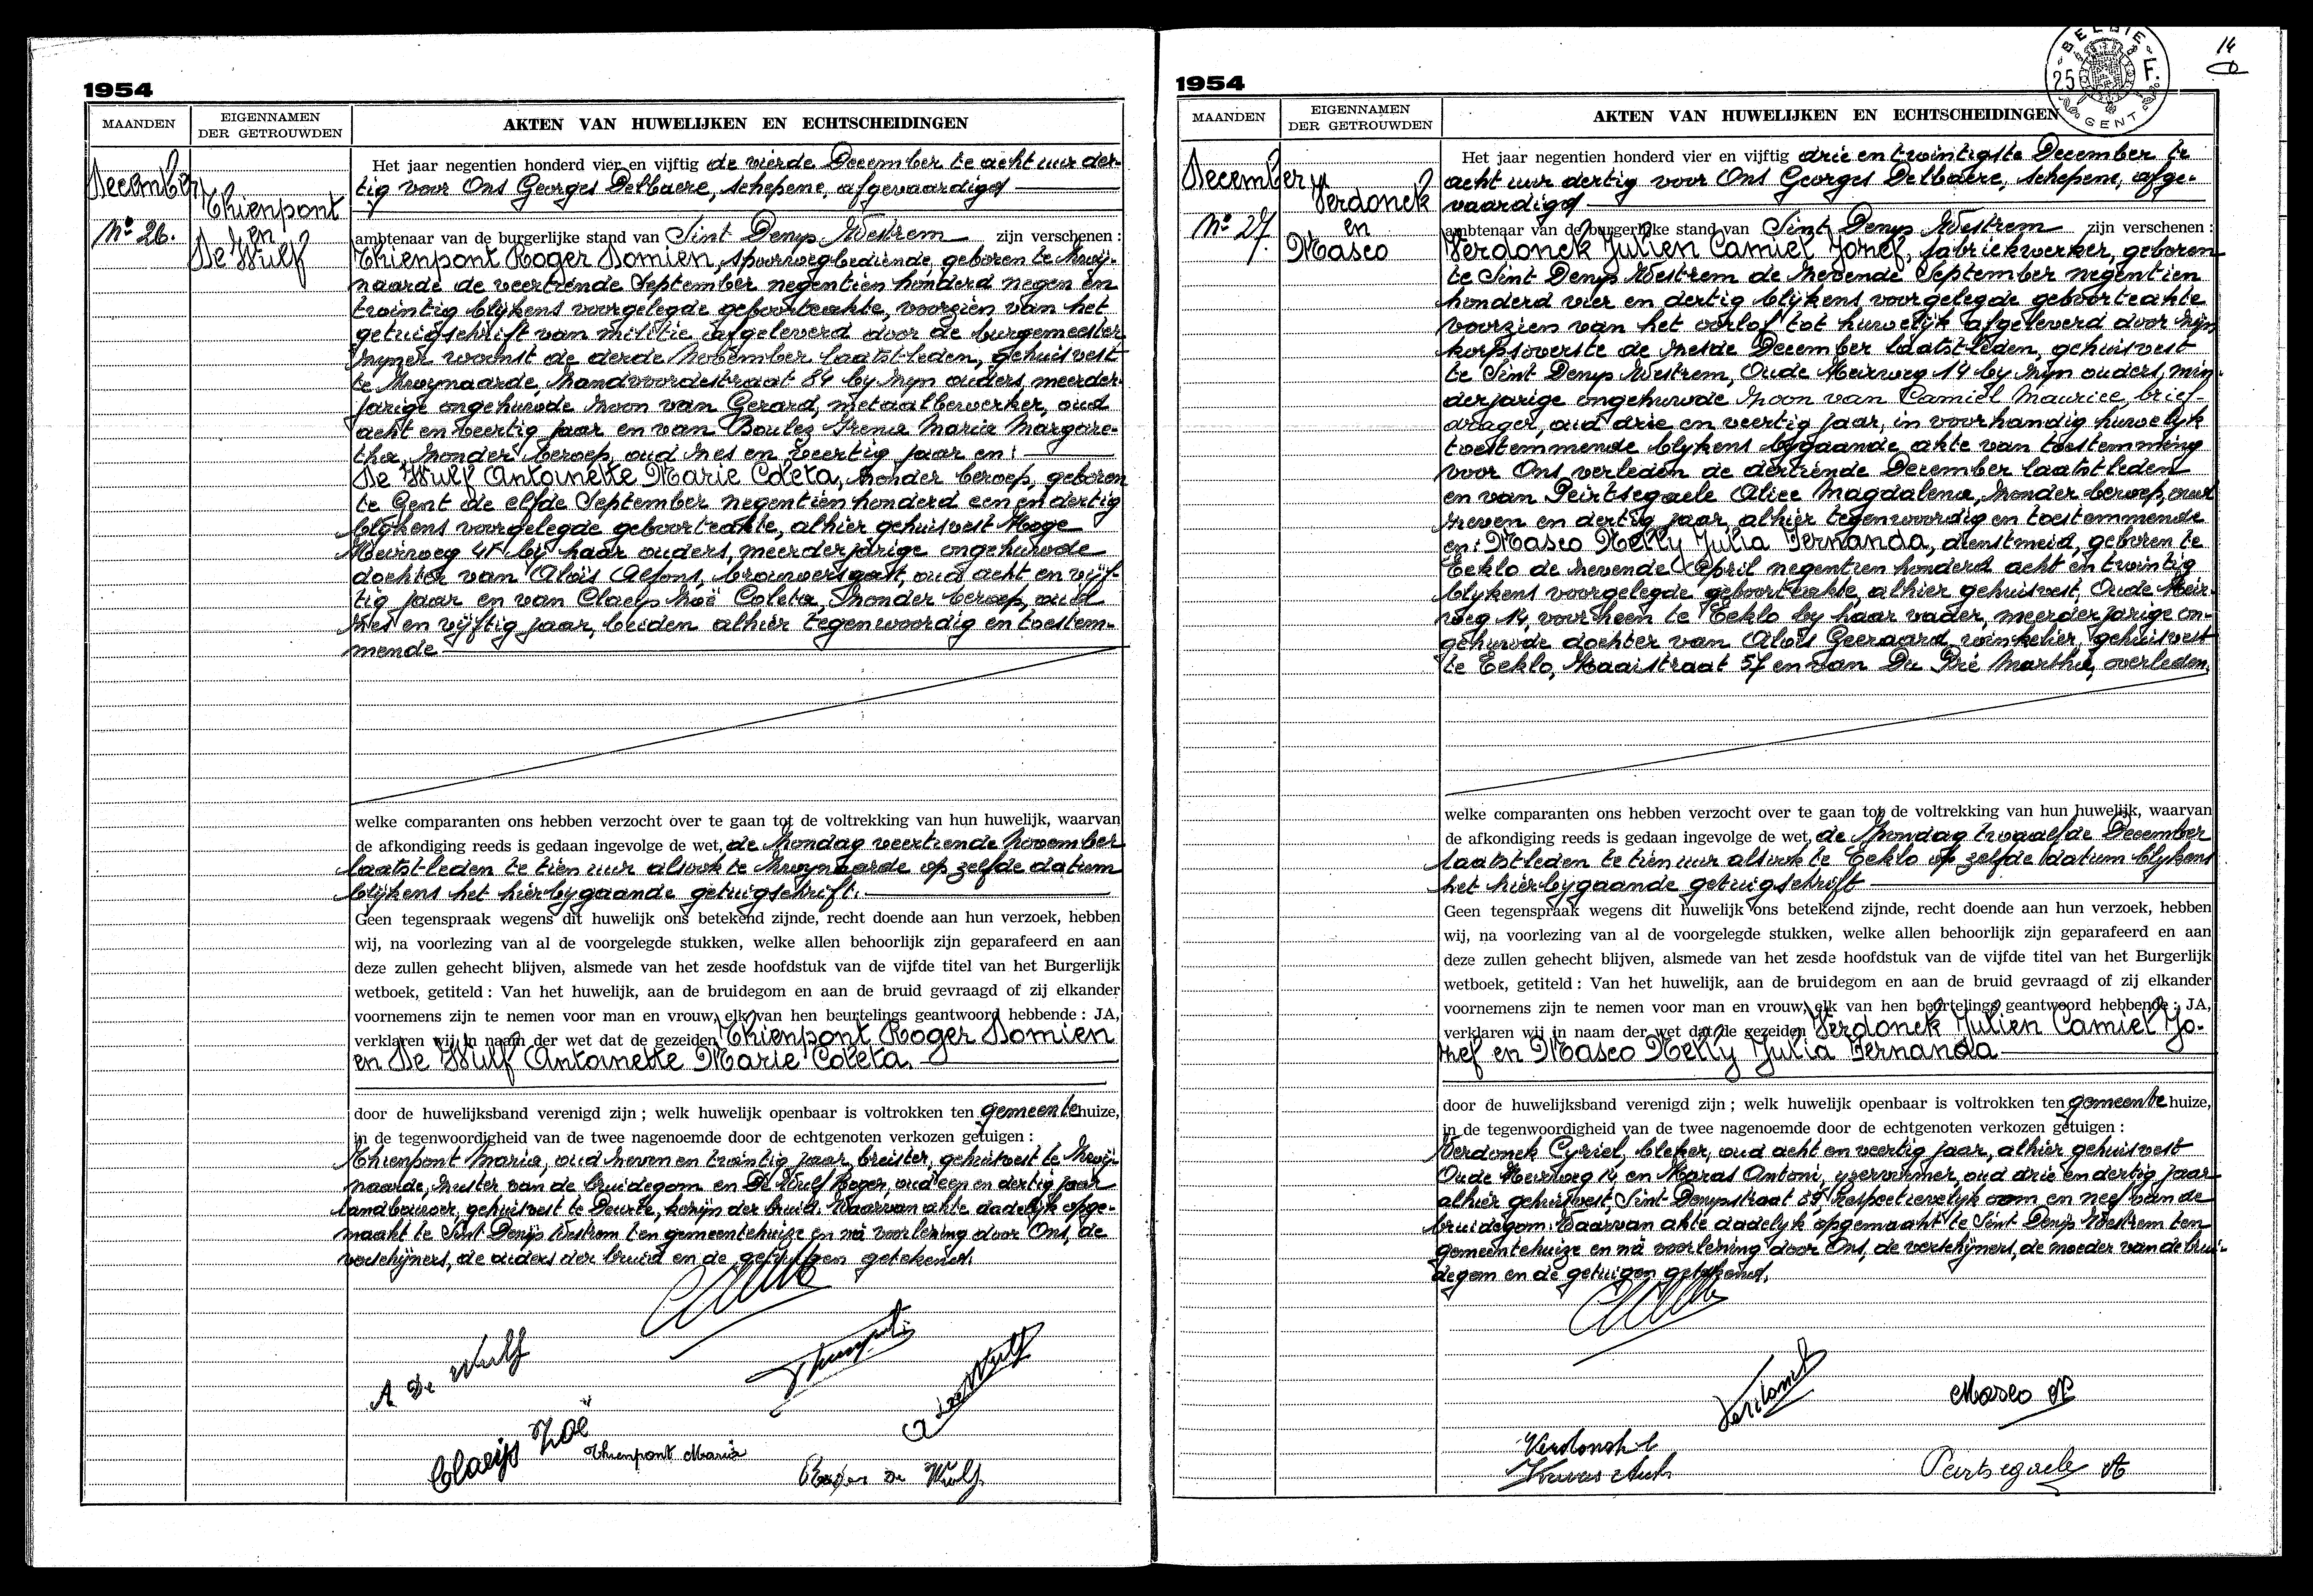 1954
MAANDEN
EIGENNAMEN
DER GETROUWDEN
AKTEN VAN HUWELIJKEN EN ECHTSCHEIDINGEN
December
No 26.
Thienpont
en
De Wulf
Het jaar negentien honderd vier en vijftig de vierde December te acht uur der-
tig voor Ons Georges Delbaere, schepene, afgevaardigd
ambtenaar van de burgerlijke stand van Sint Denys Westrem zijn verschenen :
Thienpont Roger Domien, spoorwegbediende, geboren te Zwij-
naarde de veertiende September negentien honderd negen en
twintig blijkens voorgelegde geboorteakte, voorzien van het
getuigschrift van militie afgeleverd door de burgemeester
zijner woonst de derde November laatstleden, gehuisvest
te Zwynaarde, Zandvoordestraat 84 by zyn ouders, meerder-
jarige ongehuwde zoon van Gerard, metaalbewerker, oud
acht en veertig jaar en van Boulez Irena Maria Margare-
tha, zonder beroep, oud zes en veertig jaar en:
De Wulf Antoinette Marie Coleta, zonder beroep, geboren
te Gent de elfde September negentien honderd een en dertig
blijkens voorgelegde geboorteakte, alhier gehuisvest Hoge
Heirweg 45 bij haar ouders, meerderjarige ongehuwde
dochter van Aloïs Alfons, brouwersgast, oud acht en vijf-
tig jaar en van Claeys Zoë Coleta, zonder beroep, oud
zes en vijftig jaar, beiden alhier tegenwoordig en toestem-
mende
welke comparanten ons hebben verzocht over te gaan tot de voltrekking van hun huwelijk, waarvan
de afkondiging reeds is gedaan ingevolge de wet, de Zondag veertiende November
laatstleden te tien uur alsook te Zwynaarde op zelfde datum
blijkens het hierbygaande getuigschrift.
Geen tegenspraak wegens dit huwelijk ons betekend zijnde, recht doende aan hun verzoek, hebben
wij, na voorlezing van al de voorgelegde stukken, welke allen behoorlijk zijn geparafeerd en aan
deze zullen gehecht blijven, alsmede van het zesde hoofdstuk van de vijfde titel van het Burgerlijk
wetboek, getiteld : Van het huwelijk, aan de bruidegom en aan de bruid gevraagd of zij elkander
voornemens zijn te nemen voor man en vrouw, elk van hen beurtelings geantwoord hebbende : JA,
verklaren wij in naam der wet dat de gezeiden Thienpont Roger Domien
en De Wulf Antoinette Marie Coleta.
door de huwelijksband verenigd zijn ; welk huwelijk openbaar is voltrokken ten gemeentehuize,
in de tegenwoordigheid van de twee nagenoemde door de echtgenoten verkozen getuigen :
Thienpont Maria, oud zeven en twintig jaar, breister, gehuisvest te Zwij-
naarde, zuster van de bruidegom en De Wulf Roger, oud een en dertig jaar
landbouwer, gehuisvest te Deurle, kozijn der bruid. Waarvan akte dadelyk opge-
maakt te Sint Denijs Westrem ten gemeentehuize en na voorlezing door Ons, de
verschijners, de ouders der bruid en de getuigen getekend.
A De Wulf
De Wulf
Claeijs Zoë
Thienpont Maria
Roger De Wulf
1954
BELGIE
25 F.
GENT
14
MAANDEN
EIGENNAMEN
DER GETROUWDEN
AKTEN VAN HUWELIJKEN EN ECHTSCHEIDINGEN
December
No 27.
Verdonck
en
Masco
Het jaar negentien honderd vier en vijftig drie en twintigste December te
acht uur dertig voor Ons Georges Delbaere, schepene, afge-
vaardigd
ambtenaar van de burgerlijke stand van Sint Denys Westrem zijn verschenen :
Verdonck Julien Camiel Jozef, fabriekwerker, geboren
te Sint Denys Westrem de zevende September negentien
honderd vier en dertig blijkens voorgelegde geboorteakte
voorzien van het oorlof tot huwelijk afgeleverd door zijn
korpsoverste de zesde December laatstleden, gehuisvest
te Sint Denys Westrem, Oude Heirweg 14 by zyn ouders, min-
derjarige ongehuwde zoon van Camiel Maurice, brief-
drager, oud drie en veertig jaar, in voorhandig huwelyk
toestemmende blijkens bygaande akte van toestemming
voor Ons verleden de dertiende December laatstleden
en van Peirtsegaele Alice Magdalena, zonder beroep, oud
zeven en dertig jaar, alhier tegenwoordig en toestemmende
en: Masco Nelly Julia Fernanda, dienstmeid, geboren te
Eeklo de zevende April negentien honderd acht en twintig
blykens voorgelegde geboorteakte, alhier gehuisvest, Oude Heir-
weg 14, voorheen te Eeklo by haar vader, meerderjarige on-
gehuwde dochter van Aloïs Geeraard, winkelier, gehuisvest
te Eeklo, Kaaistraat 57 en van Du Pré Martha, overleden.
welke comparanten ons hebben verzocht over te gaan tot de voltrekking van hun huwelijk, waarvan
de afkondiging reeds is gedaan ingevolge de wet, de Zondag twaalfde December
laatstleden te tien uur alsook te Eeklo op zelfde datum blykens
het hierbijgaande getuigschrift
Geen tegenspraak wegens dit huwelijk ons betekend zijnde, recht doende aan hun verzoek, hebben
wij, na voorlezing van al de voorgelegde stukken, welke allen behoorlijk zijn geparafeerd en aan
deze zullen gehecht blijven, alsmede van het zesde hoofdstuk van de vijfde titel van het Burgerlijk
wetboek, getiteld : Van het huwelijk, aan de bruidegom en aan de bruid gevraagd of zij elkander
voornemens zijn te nemen voor man en vrouw, elk van hen beurtelings geantwoord hebbende : JA,
verklaren wij in naam der wet dat de gezeiden Verdonck Julien Camiel Jo-
zef en Masco Nelly Julia Fernanda
door de huwelijksband verenigd zijn ; welk huwelijk openbaar is voltrokken ten gemeentehuize,
in de tegenwoordigheid van de twee nagenoemde door de echtgenoten verkozen getuigen :
Verdonck Cyriel, bleker, oud acht en veertig jaar, alhier gehuisvest
Oude Heirweg 14, en Karas Antoni, yzervormer, oud drie en dertig jaar
alhier gehuisvest, Sint Denysstraat 89, respectievelyk oom en neef van de
bruidegom. Waarvan akte dadelyk opgemaakt te Sint Denys Westrem ten
gemeentehuize en na voorlezing door Ons, de verschijners, de moeder van de brui-
degom en de getuigen getekend.
Verdonck
Masco N
Verdonck C
Peirtsegaele A